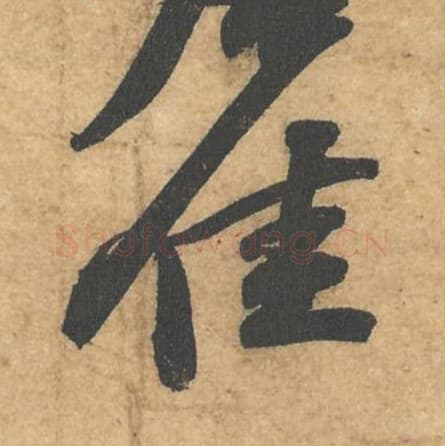 佳
ShufaWang.CN